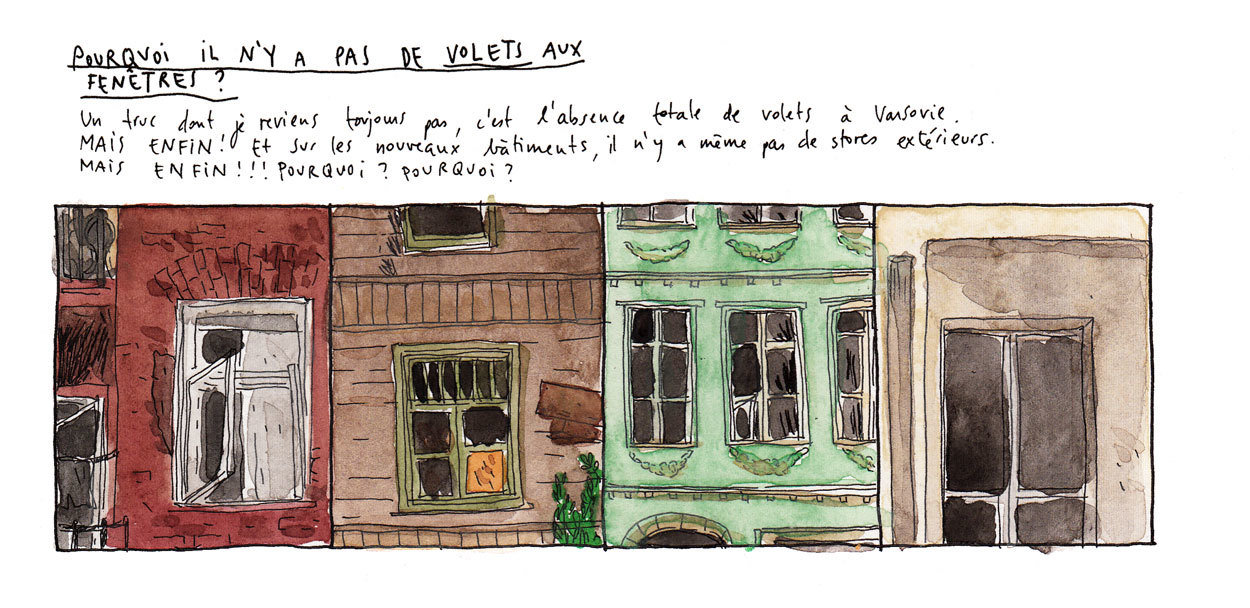 POURQUOI IL N'Y A PAS DE VOLETS AUX
FENÊTRES ?
Un truc dont je reviens toujours pas, c'est l'absence totale de volets à Varsovie.
MAIS ENFIN ! Et sur les nouveaux bâtiments, il n'y a même pas de stores extérieurs.
MAIS ENFIN !!! POURQUOI ? POURQUOI ?